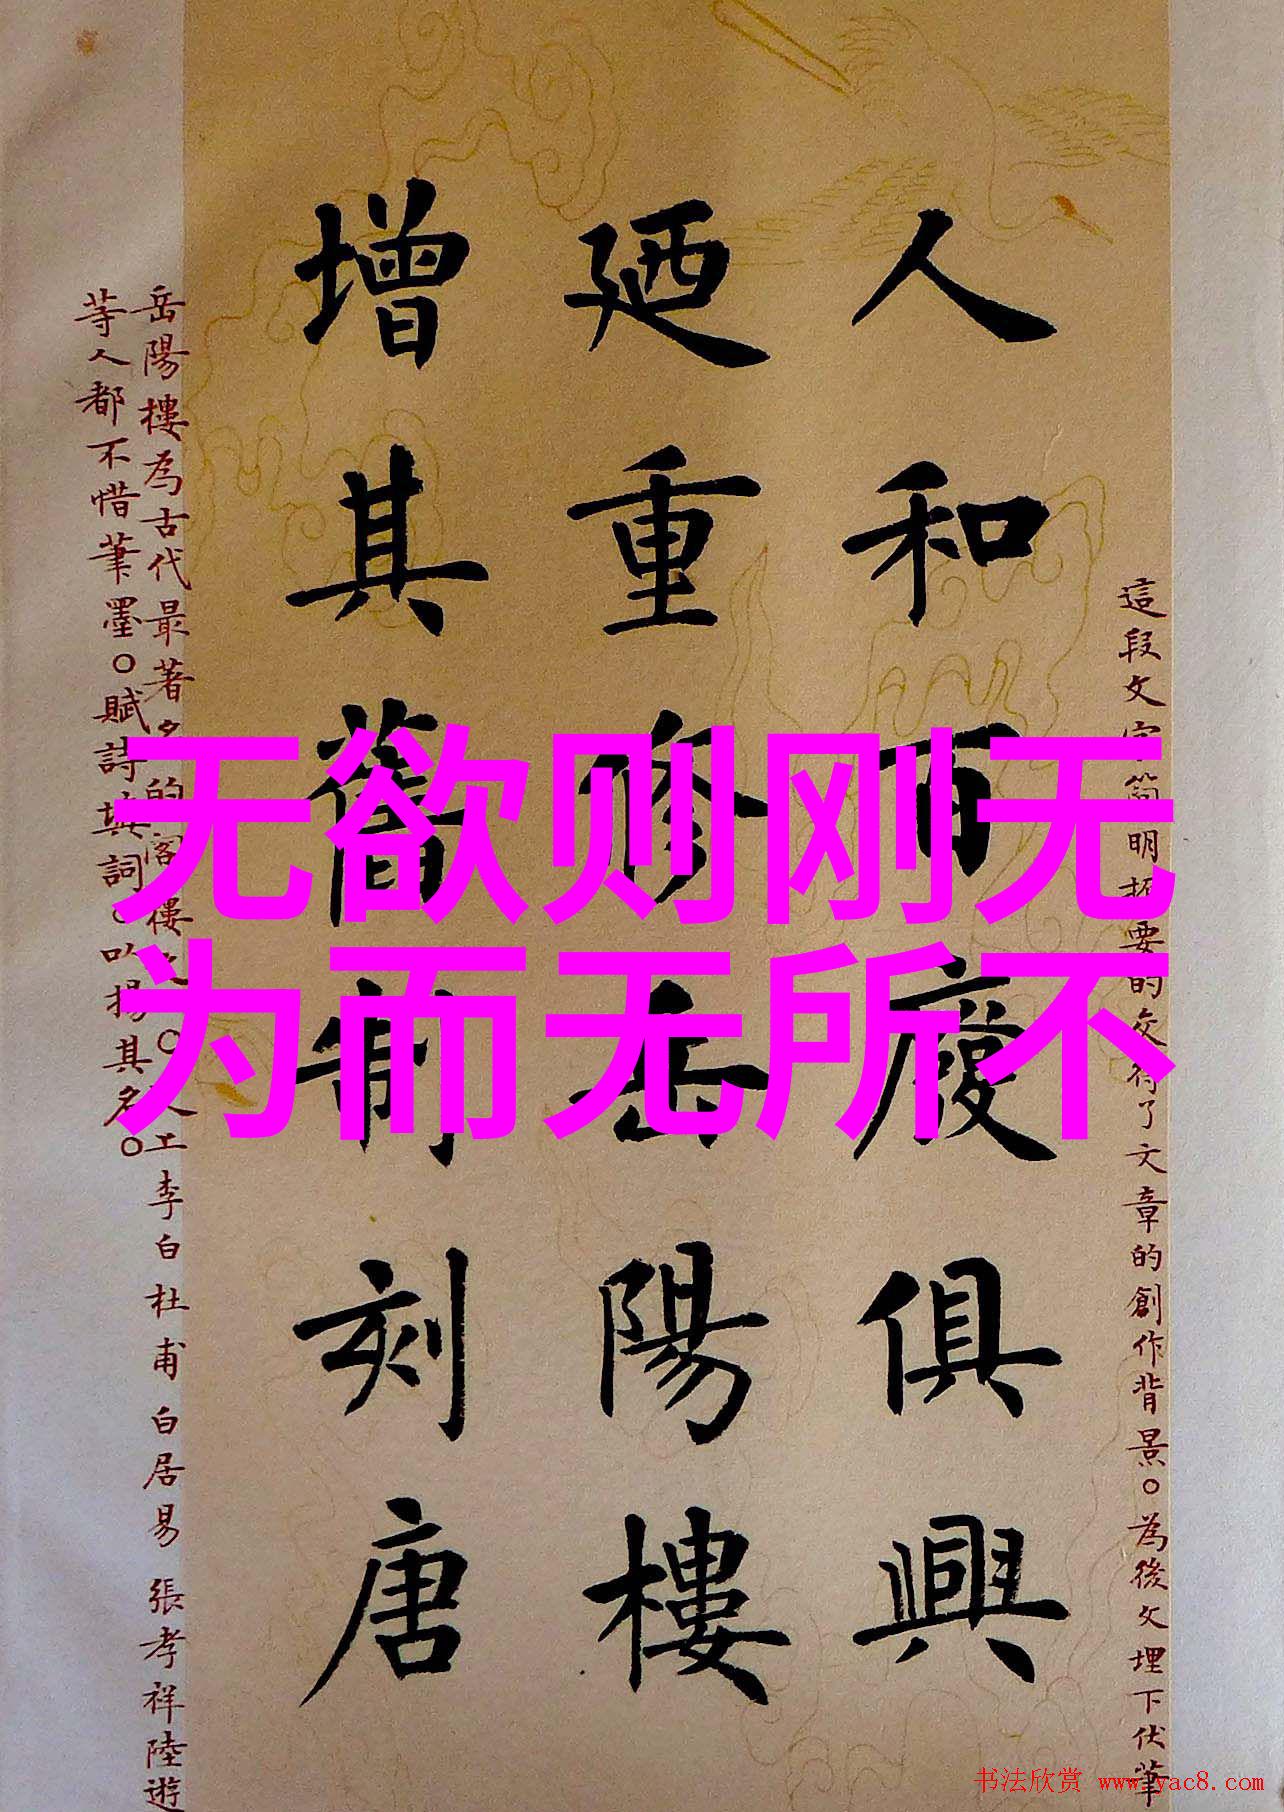 人和百廢俱興
廼重修岳陽樓
增其舊制刻唐
這段文字簡明扼要的交待了文章的創作背景。為後文埋下伏筆
岳陽樓為古代最著名的閣樓之。人工李白杜甫白居易張孝祥陸游
等人都不惜筆墨。賦詩填詞。以揚其名。
无欲则刚无
为而无所不
书法欣赏 www.yac8.com